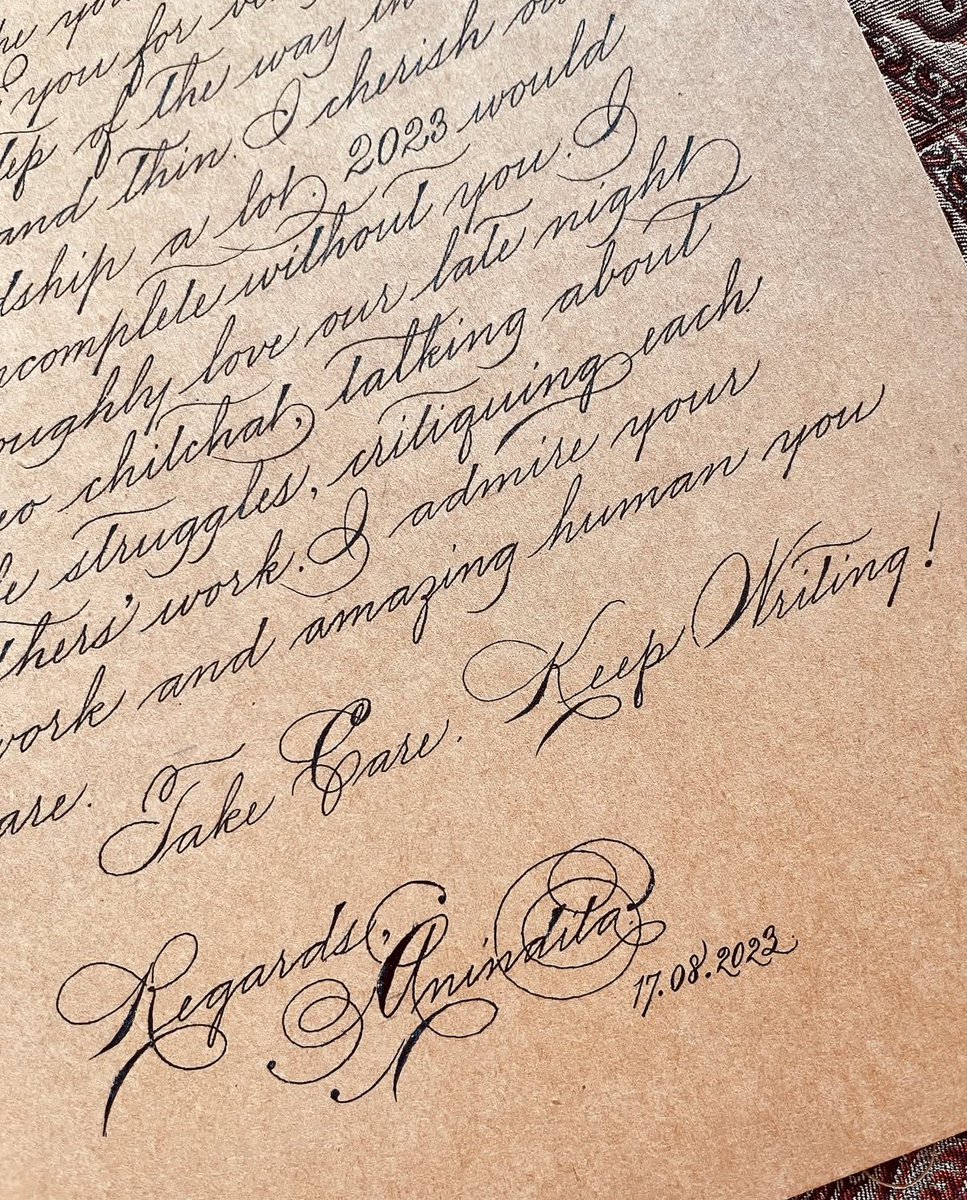 you for
of the way in
and thin. I cherish
dship a lot. 2023 would
complete without you. I
oughly love our late night
eo chitchat, talking about
e struggles, critiquing each
thers' work. I admire your
work and amazing human you
are. Take Care. Keep Writing!
Regards,
Anindita.
17.08.2023.